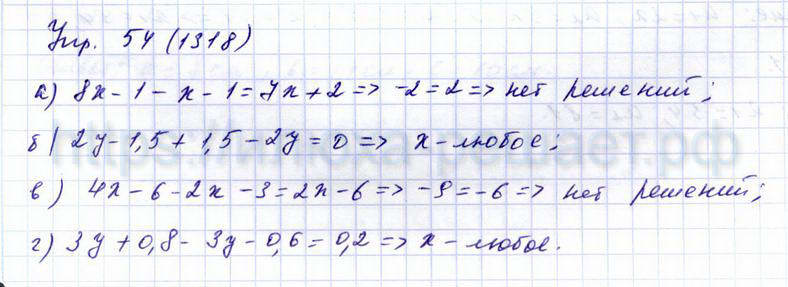 Упр. 54 (1318)
а) 8x - 1 - x - 1 = 7x + 2 => -2 = 2 => нет решений;
б) 2y - 1,5 + 1,5 - 2y = 0 => x - любое;
в) 4x - 6 - 2x - 3 = 2x - 6 => -9 = -6 => нет решений;
г) 3y + 0,8 - 3y - 0,6 = 0,2 => x - любое.